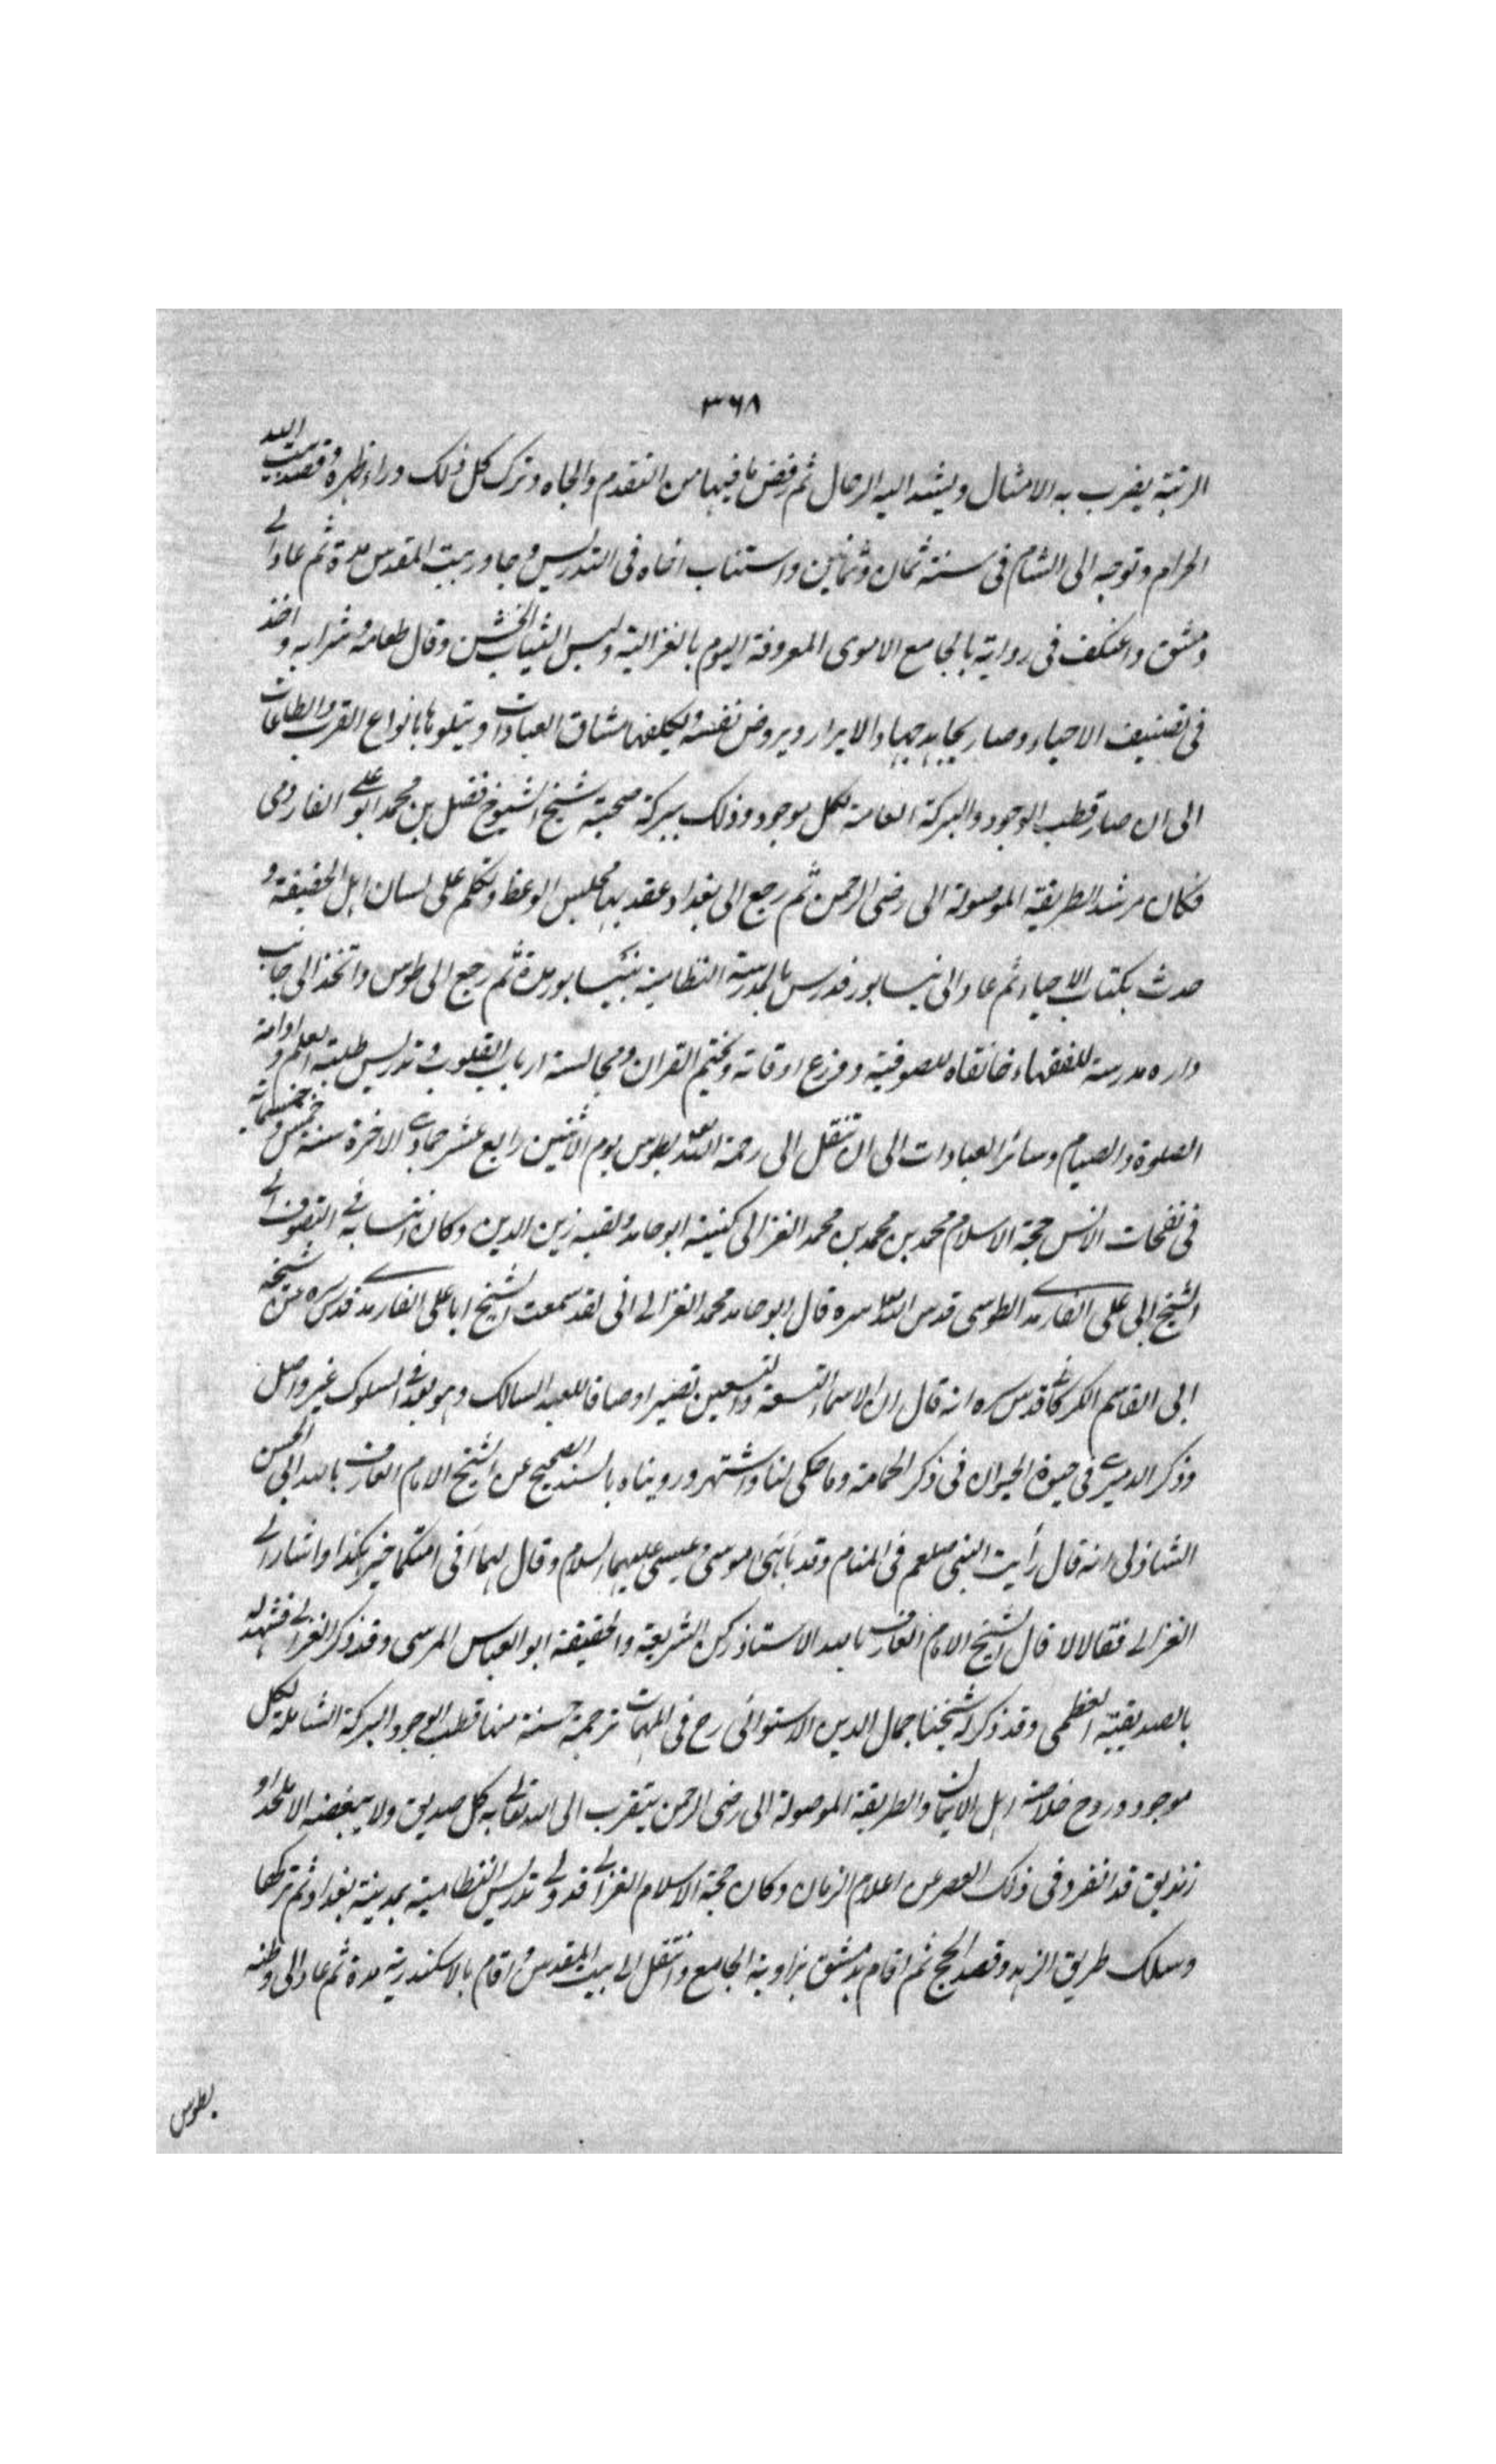 ٣٦٨
الرتبة يضرب به الامثال ويشد اليه الرحال ثم رفض ما فيها من التقدم والجاه وترك كل ذلك وراء ظهره وقصد بيت الله
الحرام وتوجه الى الشام فى سنة ثمان وثمانين واستناب اخاه فى التدريس وجاور بيت المقدس مدة ثم عاد الى
دمشق واعتكف فى رواية بالجامع الاموى المعروفة اليوم بالغزالية ولبس الثياب الخشن وقال طعامه وشرابه واخذ
فى تصنيف الاحياء وصار يجاهد جهاد الابرار ويروض نفسه ويكلفها مشاق العبادات ويتلوها بانواع القرب والطاعات
الى ان صار قطب الوجود والبركة العامة لكل موجود وذلك ببركة صحبة شيخ الشيوخ فضل بن محمد ابو على الفارومى
فكان مرشد الطريقة الموصولة الى رضى الرحمن ثم رجع الى بغداد عقد بها مجلس الوعظ وتكلم على لسان اهل الحقيقة و
حدث بكتاب الاحياء ثم عاد الى نيسابور فدرس بالمدرسة النظامية بنيسابور مدة ثم رجع الى طوس واتخذ الى جانب
داره مدرسة للفقهاء خانقاه للصوفية ووزع اوقاته وختم القران ومجالسة ارباب القلوب وتدريس طلبة العلم وادامة
الصلوة والصيام وسائر العبادات الى ان تنقل الى رحمة الله بطوس يوم الاثنين رابع عشر جمادى الاخرة سنة خمس وخمسمائة
فى نفحات الانس حجة الاسلام محمد بن محمد بن محمد الغزالى كنيته ابو حامد ولقبه زين الدين وكان انتسابه فى التصوف الى
الشيخ ابى على الفارمدى الطوسى قدس الله سره قال ابو حامد محمد الغزالى انى لقد سمعت الشيخ ابا على الفارمدى قدس سره من شيخه
ابى القاسم الكركانى قدس سره انه قال ان الاسماء التسعة والتسعين تصير اوصافا للعبد السالك وهو بعد فى السلوك غير واصل
وذكر الدميرى فى حيوة الحيوان فى ذكر الحمامة وما حكى لنا واشتهر ورويناه بالسند الصحيح عن الشيخ الامام العارف بالله ابى الحسن
الشاذلى انه قال رأيت النبى صلعم فى المنام وقد باهى موسى وعيسى عليهما السلام وقال لهما أفى امتكما خير كهذا واشار الى
الغزالى فقالا لا قال الشيخ الامام العارف بالله الاستاذ ركن الشريعة والحقيقة ابو العباس المرسى وقد ذكر الغزالى فشهد له
بالصديقية العظمى وقد ذكر له شيخنا جمال الدين الاستوائى رح فى المهمات ترجمة حسنة منها قطب الوجود والبركة الشاملة لكل
موجود وروح خلاصة اهل الايمان والطريقة الموصولة الى رضى الرحمن يتقرب الى الله تعالى به كل صديق ولا يبغضه الا ملحد او
زنديق قد انفرد فى ذلك العصر عن اعلام الزمان وكان حجة الاسلام الغزالى قد ولى تدريس النظامية بمدينة بغداد ثم تركها
وسلك طريق الزهد وقصد الحج ثم اقام بدمشق بزاوية الجامع وانتقل الى بيت المقدس واقام بالاسكندرية مدة ثم عاد الى وطنه
بطوس